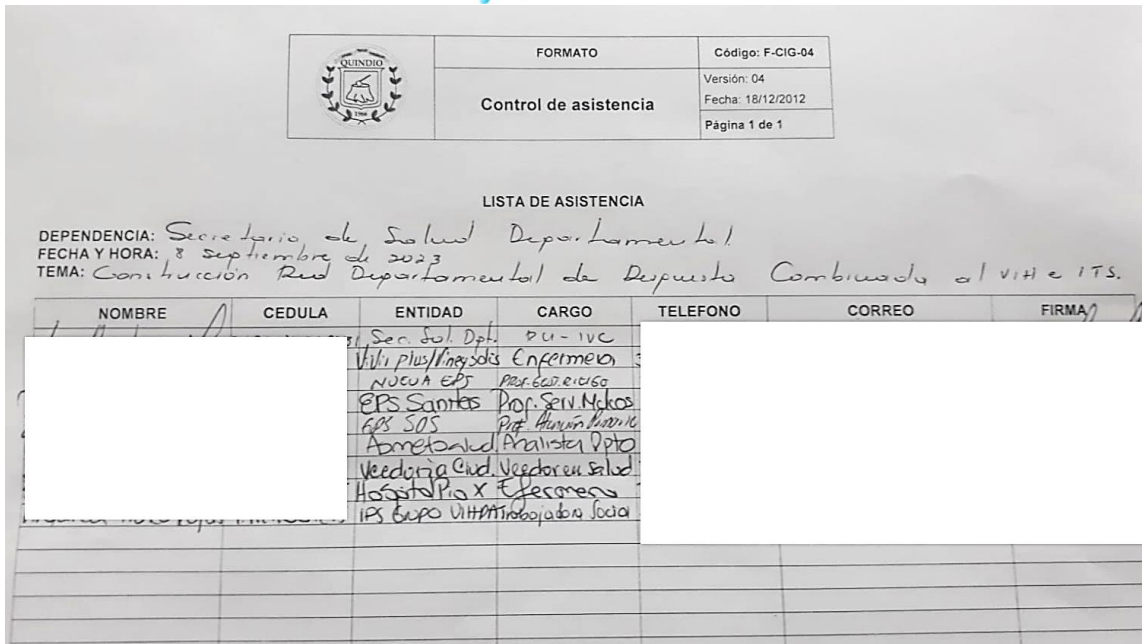 QUINDIO
1966
FORMATO
Código: F-CIG-04
Control de asistencia
Versión: 04
Fecha: 18/12/2012
Página 1 de 1
LISTA DE ASISTENCIA
DEPENDENCIA: Secretaria de Salud Departamental.
FECHA Y HORA: 8 septiembre de 2023
TEMA: Construcción Red Departamental de Respuesta Combinada al VIH e ITS.
NOMBRE CEDULA ENTIDAD CARGO TELEFONO CORREO FIRMA
Sec. Sal. Dpt. PU-IVC
Vivir plus/Vineysolis Enfermera
NUEVA EPS
EPS Sanitas Prof. Serv. Mdcos
EPS SOS Prof. Atención
Asmetsalud Analista Dpto
Veeduria Ciud. Veedor en Salud
Hospital Pio X Efermera
IPS GRUPO VIHDA Trabajadora Social